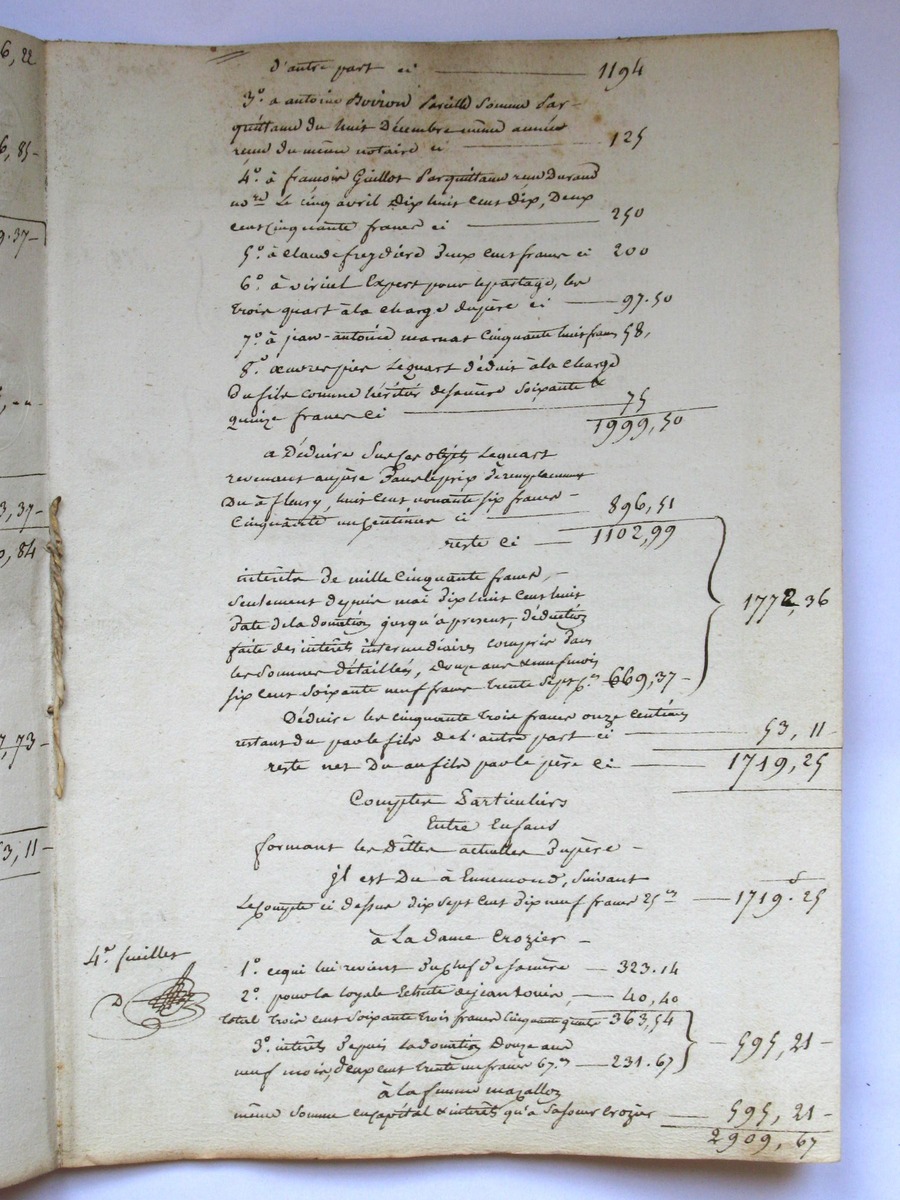 6, 22
6, 85-
9.37-
3,37-
0, 84
7,73-
3, 11-
d'autre part ci 1194
3° a antoine Boiron Pareille Somme Par-
quittance du huit Décembre même année
reçue du même notaire ci 125
4° à francois Guillot Par quittance reçue Durand
nore Le cinq avril Dix huit Cent Dix, Deux
cent Cinquante francs ci 250
5° à Claude freydière Deux Cent francs ci 200
6° à viriel Expert pour le partage, les
trois quart à la charge du père ci 97.50
7° à jean-antoine marnat Cinquante huit francs 58,
8° œuvres pies Le quart déduit à la charge
Du fils comme héritier de sa mère Soixante &
quinze francs Ci 75
1999,50
a Déduire Sur ces objets Le quart
revenant au père Dans le prix de remplacement
Du à fleury, huit Cent nonante six francs -
Cinquante un Centimes ci 896,51
reste Ci 1102,99
intérêts de mille Cinquante francs, -
Seulement depuis mai Dix huit Cent huit
Date de la donation jusqu'a present, déduction
faite des intérêts intermédiaires compris Dans
les Sommes détaillées, Douze ans & neuf mois
six Cent Soixante neuf francs trente Sept Cs 669,37-
1772,36
Déduire les Cinquante trois francs onze Centimes
restant du par le fils de l'autre part ci 53, 11-
reste net Du au fils par le père Ci 1719,25
Comptes Particuliers
Entre Enfans
formant les Dettes actuelles Du père -
Il est Du à Ennemond, Suivant
Le Compte ci dessus dix Sept Cent Dix neuf francs 25 cs 1719.25
à La Dame Crozier -
4e feuillet
D
1° ce qui lui revient Du chef De sa mère 323.14
2° pour la loyale Echute de jean Louis, 40,40
total trois cent Soixante trois francs Cinquante quatre 363,54
3° intérêts Depuis La donation Douze ans
neuf mois, deux Cent trente un francs 67 cs 231.67
- 595,21-
à la femme mazalloz
même Somme en Capital & intérêts qu'a Sa Soeur Crozier 595, 21-
2909, 67